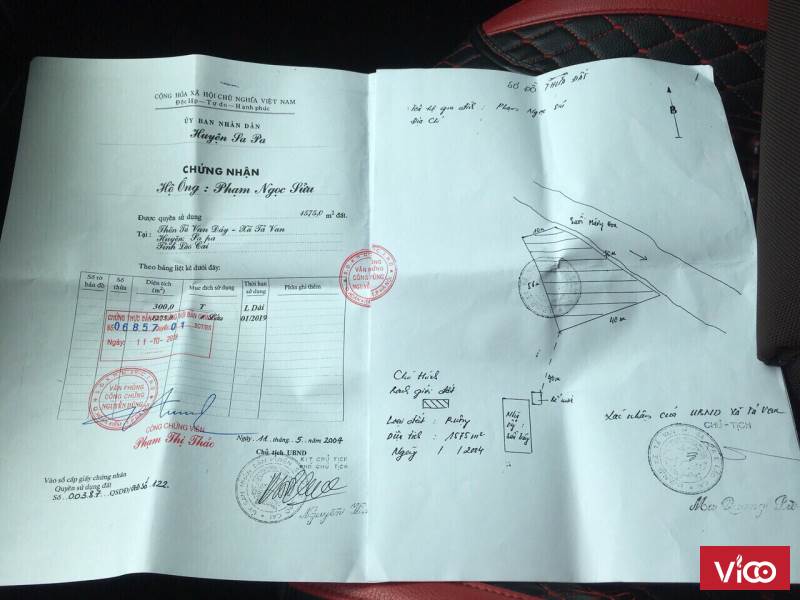 CỘNG HÒA XÃ HỘI CHỦ NGHĨA VIỆT NAM
Độc lập - Tự do - Hạnh phúc
ỦY BAN NHÂN DÂN
Huyện Sa Pa
CHỨNG NHẬN
Hộ Ông : Phạm Ngọc Sửu
Được quyền sử dụng 1575,0 m² đất.
Tại : Thôn Tả Van Dáy - Xã Tả Van
Huyện: Sa pa
Tỉnh Lào Cai
Theo bảng liệt kê dưới đây:
Số tờ bản đồ Số thửa Diện tích (m²) Mục đích sử dụng Thời hạn sử dụng Phần ghi thêm
300,0 T L Dài
Lúa 01/2019
CHỨNG THỰC BẢN SAO ĐÚNG VỚI BẢN CHÍNH
06857 01
Ngày: 11-10-
VĂN PHÒNG
CÔNG CHỨNG
CÔNG CHỨNG VIÊN
Phạm Thị Thảo
Ngày 11 tháng 5 năm 2004
Chủ tịch UBND
KÝT CHỦ TỊCH
PHÓ CHỦ TỊCH
Nguyễn
Vào sổ cấp giấy chứng nhận
Quyền sử dụng đất
Số 00387 QSDĐ/ 122
SƠ ĐỒ THỬA ĐẤT
1
Phạm Ngọc
Địa chỉ
B
Suối Mường Hoa
10m
56m
40m
40m
Chú thích
Ranh giới đất
Loại đất : Ruộng
Diện tích : 1575 m²
Ngày / / 2004
Nhà
Xác nhận của UBND Xã Tả Van
CHỦ TỊCH
VICO